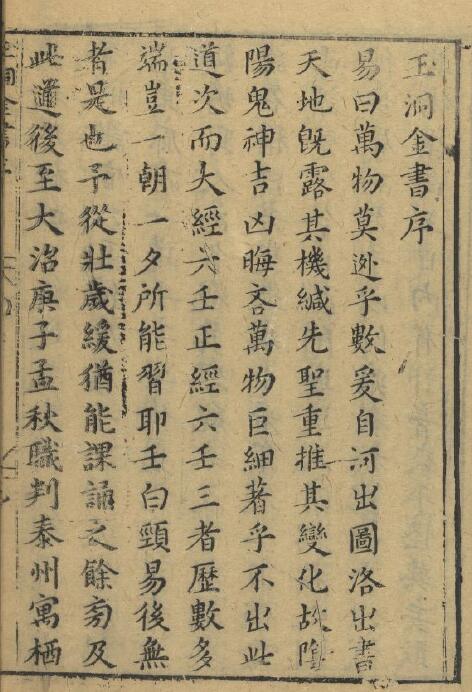 玉洞金書序
易曰萬物莫迯乎數爰自河出圖洛出書
天地既露其機緘先聖重推其變化故陰
陽鬼神吉凶晦吝萬物巨細著乎不出此
道次而大經六壬正經六壬三者歷數多
端豈一朝一夕所能習耶壬白頸易後無
者是也予從壯歲緩猶能課誦之餘旁及
此邇後至大沿庚子孟秋職判泰州寓栖